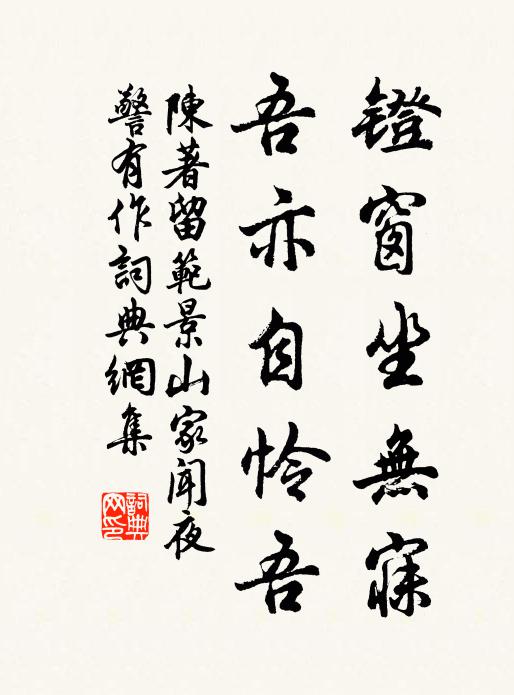 鐙窗坐無寐
吾亦自怜吾
陳著留範景山家聞夜
警有作詞典網集
詞典
网印